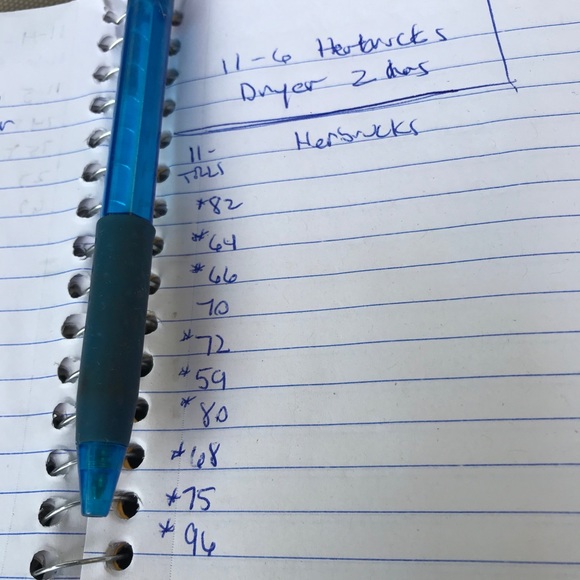 11-6 Herbrucks
Dryer 2 dras
Herbrucks
11-
*82
*64
*66
70
*72
*59
*80
*68
*75
*96